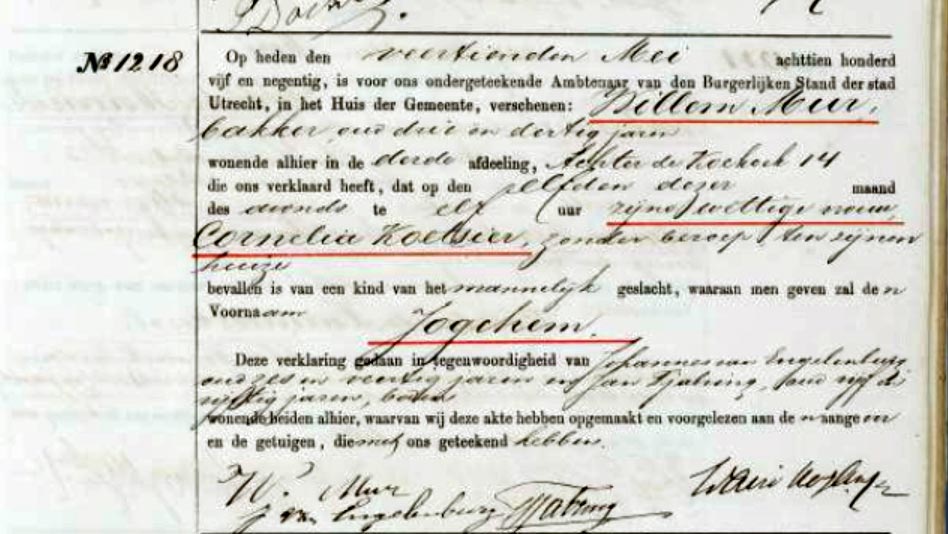 No 1218
Op heden den veertienden Mei achttien honderd
vijf en negentig, is voor ons ondergeteekende Ambtenaar van den Burgerlijken Stand der stad
Utrecht, in het Huis der Gemeente, verschenen: Willem Mur,
bakker, oud drie en dertig jaren
wonende alhier in de derde afdeeling, Achter de 14
die ons verklaard heeft, dat op den elfden dezer maand
des avonds te elf uur zijne wettige vrouw,
Cornelia Koetsier, zonder beroep, ten zijnen
huize
bevallen is van een kind van het mannelijk geslacht, waaraan men geven zal den
Voornaam Jogchem.
Deze verklaring gedaan in tegenwoordigheid van Johannes van Engelenburg
oud zes en veertig jaren en Jan Tjabring, oud vijf en
vijftig jaren, boden
wonende beiden alhier, waarvan wij deze akte hebben opgemaakt en voorgelezen aan de n aangever
en de getuigen, die met ons geteekend hebben.
W. Mur
J van Engelenburg JTjabring